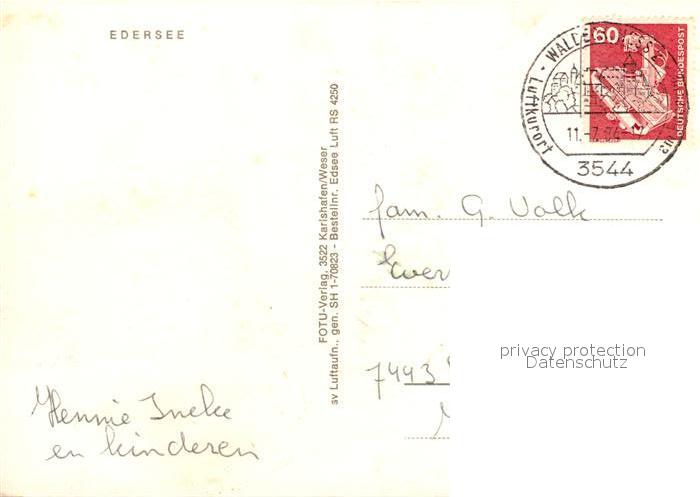 EDERSEE
60
DEUTSCHE BUNDESPOST
Luftkurort
11.-7.
3544
FOTU-Verlag, 3522 Karlshafen/Weser
sv Luftaufn., gen. SH 1-70823 - Bestellnr. Edsee Luft RS 4250
fam. G. Volk
7443
privacy protection
Datenschutz
Hennie Ineke
en kinderen